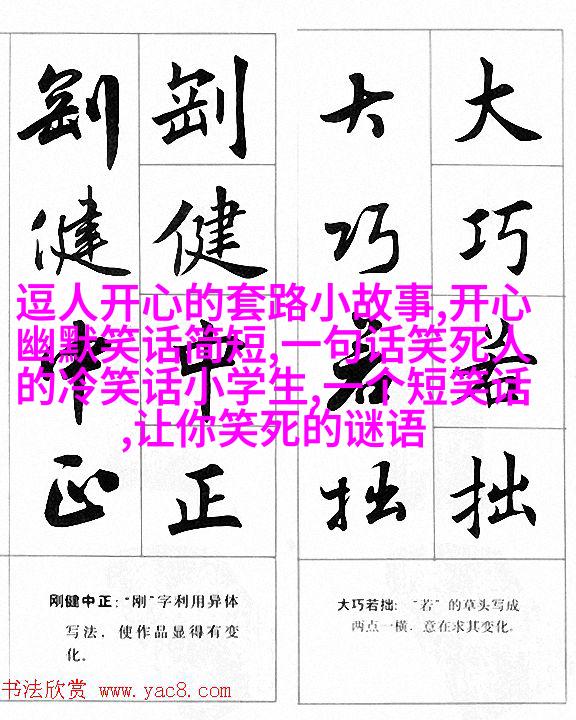 剛剛大大
健健巧巧
中中若若
正正拙拙
逗人开心的套路小故事,开心
幽默笑话简短,一句话笑死人
的冷笑话小学生,一个短笑话
,让你笑死的谜语
刚健中正：“刚”字利用异体
写法，使作品显得有变
化。
大巧若拙：“若”的草头写成
两点一横，意在求其变化。
书法欣赏 www.yac8.com